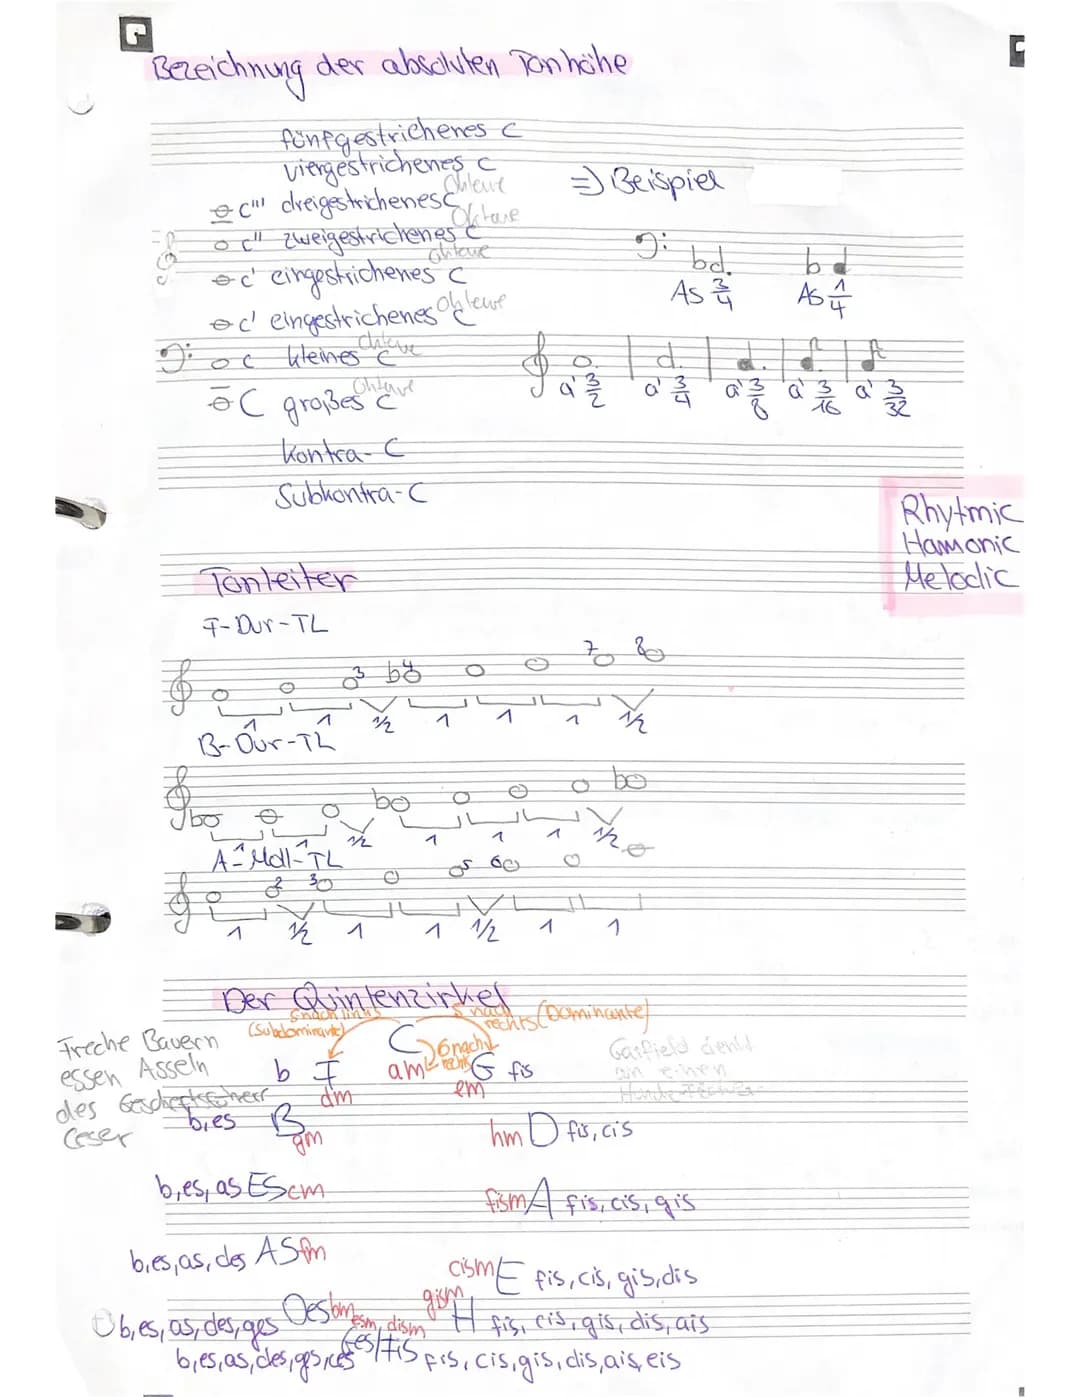 Bezeichnung der absoluten Tonhöhe
fünfgestrichenes C
viergestrichenes C
c''' dreigestrichenes C Oktave
=> Beispiel
c'' zweigestrichenes C Oktave
c' eingestrichenes C Oktave
bd. bd
As 3/4 As 1/4
c' eingestrichenes C Oktave
c kleines C Oktave
C großes C Oktave
a' 3/2 a' 3/4 a' 3/8 a' 3/16 a' 3/32
Kontra-C
Subkontra-C
Rhytmic
Hamonic
Melodic
Tonleiter
F-Dur-TL
3 b4 7 8
1 1 1/2 1 1 1 1/2
B-Dur-TL
b b b
1 1 1/2 1 1 1 1/2
A-Moll-TL
2 3 5 6
1 1/2 1 1 1/2 1 1
Der Quintenzirkel
5 nach links 5 nach rechts (Dominante)
(Subdominante)
C
6 nach rechts
Freche Bauern
essen Asseln
des
Ceser
Garfield denkt
an einen
b F am G fis
dm em
b,es B hm D fis, cis
gm
b,es,as ES cm fism A fis, cis, gis
b,es,as,des AS fm cism E fis, cis, gis, dis
b,es,as,des,ges Des bm gism H fis, cis, gis, dis, ais
esm, dism
b,es,as,des,ges,ces Ges/Fis fis, cis, gis, dis, ais, eis